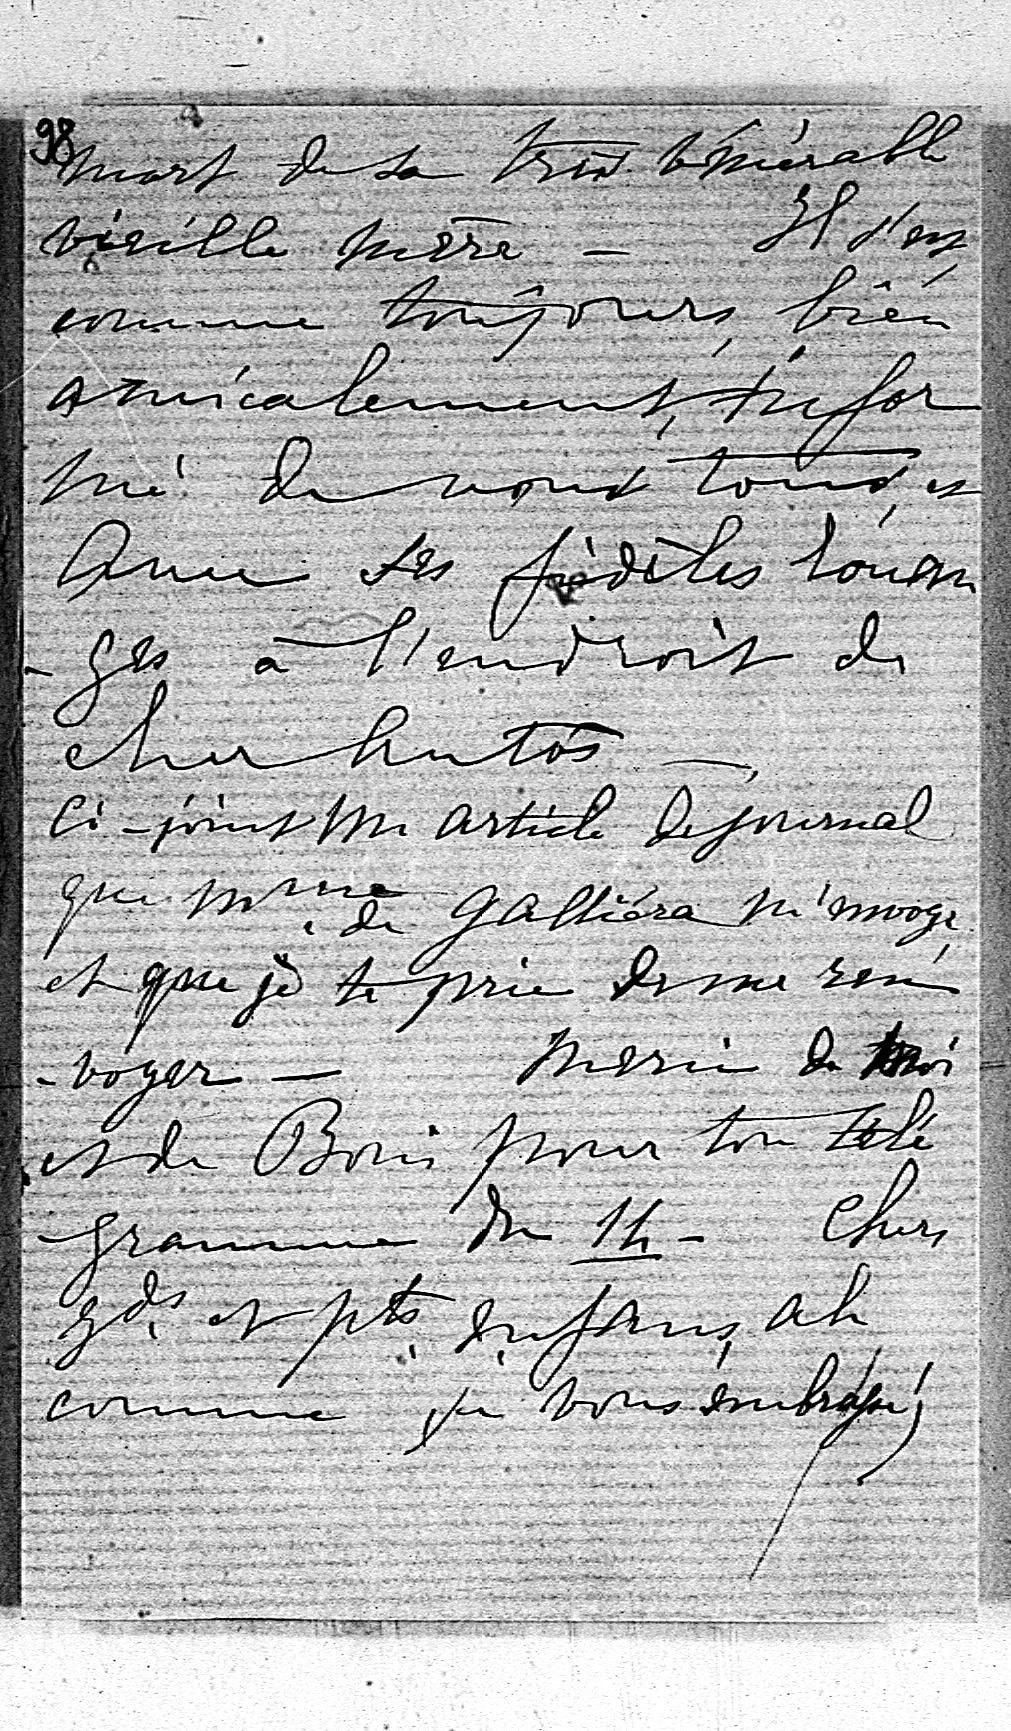 98
mort de sa très vénérable
vieille mère — Il s'est
comme toujours, bien
amicalement, infor
mé de vous tous et
avec ses fidèles louan
-ges à l'endroit de
cher
Ci-joint un article de journal
que Mme de Galliéra m'envoye
et que je te prie de me ren
-voyer — Merci de moi
et de Boris pour ton télé
-gramme du 14 — Chers
gds et pts enfans, ah
comme je vous embrasse,